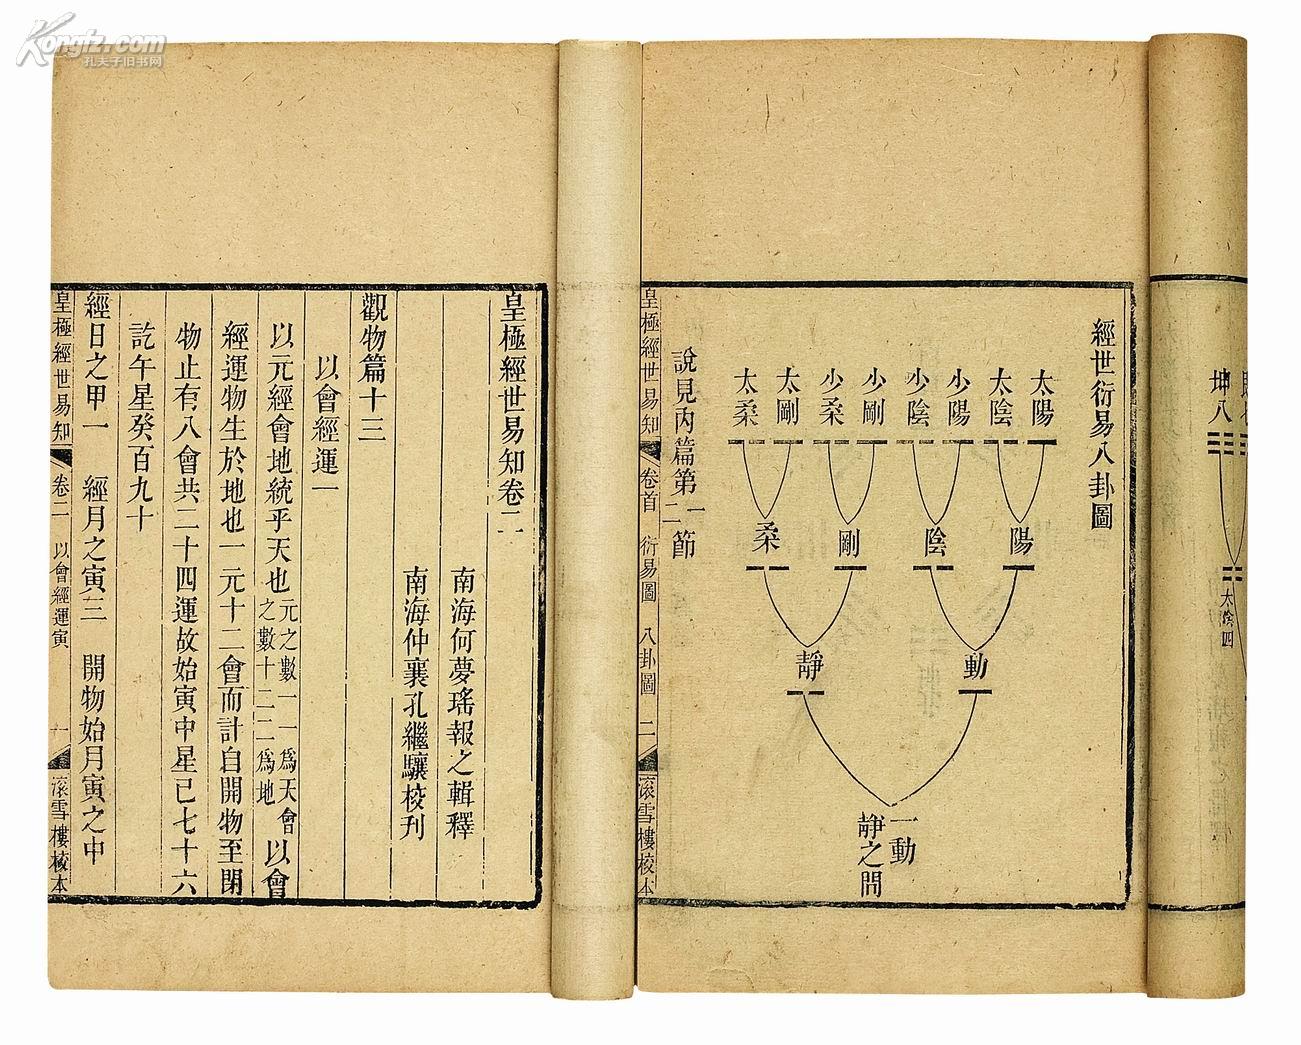 Kongfz.com
孔夫子旧书网
坤八
太陰四
經世衍易八卦圖
太陽
太陰
少陽
少陰
少剛
少柔
太剛
太柔
陽
陰
剛
柔
動
靜
一動
靜之間
說見內篇第一二節
皇極經世易知
卷首
衍易圖
八卦圖
二
滚雪樓校本
皇極經世易知卷二
南海何夢瑤報之輯釋
南海仲襄孔繼驤校刊
觀物篇十三
以會經運一
以元經會地統乎天也元之數一一爲天會之數十二二爲地以會
經運物生於地也一元十二會而計自開物至閉
物止有八會共二十四運故始寅中星已七十六
訖午星癸百九十
經日之甲一 經月之寅三 開物始月寅之中
皇極經世易知
卷二
以會經運寅
一
滚雪樓校本